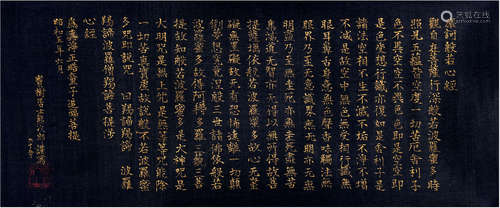 摩訶般若心經
觀自在菩薩行深般若波羅蜜多時
照見五蘊皆空度一切苦厄舍利子
色不異空空不異色色即是空空即
是色受想行識亦復如是舍利子是
諸法空相不生不滅不垢不淨不增
不減是故空中無色無受想行識無
眼耳鼻舌身意無色聲香味觸法無
眼界乃至無意識界無無明亦無無
明盡乃至無老死亦無老死盡無苦
集滅道無智亦無得以無所得故菩
提薩埵依般若波羅蜜多故心無罣
礙無罣礙故無有恐怖遠離一切顛
倒夢想究竟涅槃三世諸佛依般若
波羅蜜多故得阿耨多羅三藐三菩
提故知般若波羅蜜多是大神呪是
大明呪是無上呪是無等等呪能除
一切苦真實不虛故說般若波羅蜜
多呪即說呪曰 羯諦羯諦 波羅
羯諦波羅僧羯諦菩提
心經
海正勝童子追福菩提
昭和年六月